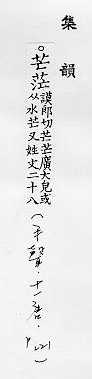 集韻
。芒茫
謨郎切芒芒廣大皃或
从水芒又姓文二十八
(平聲.十一唐.